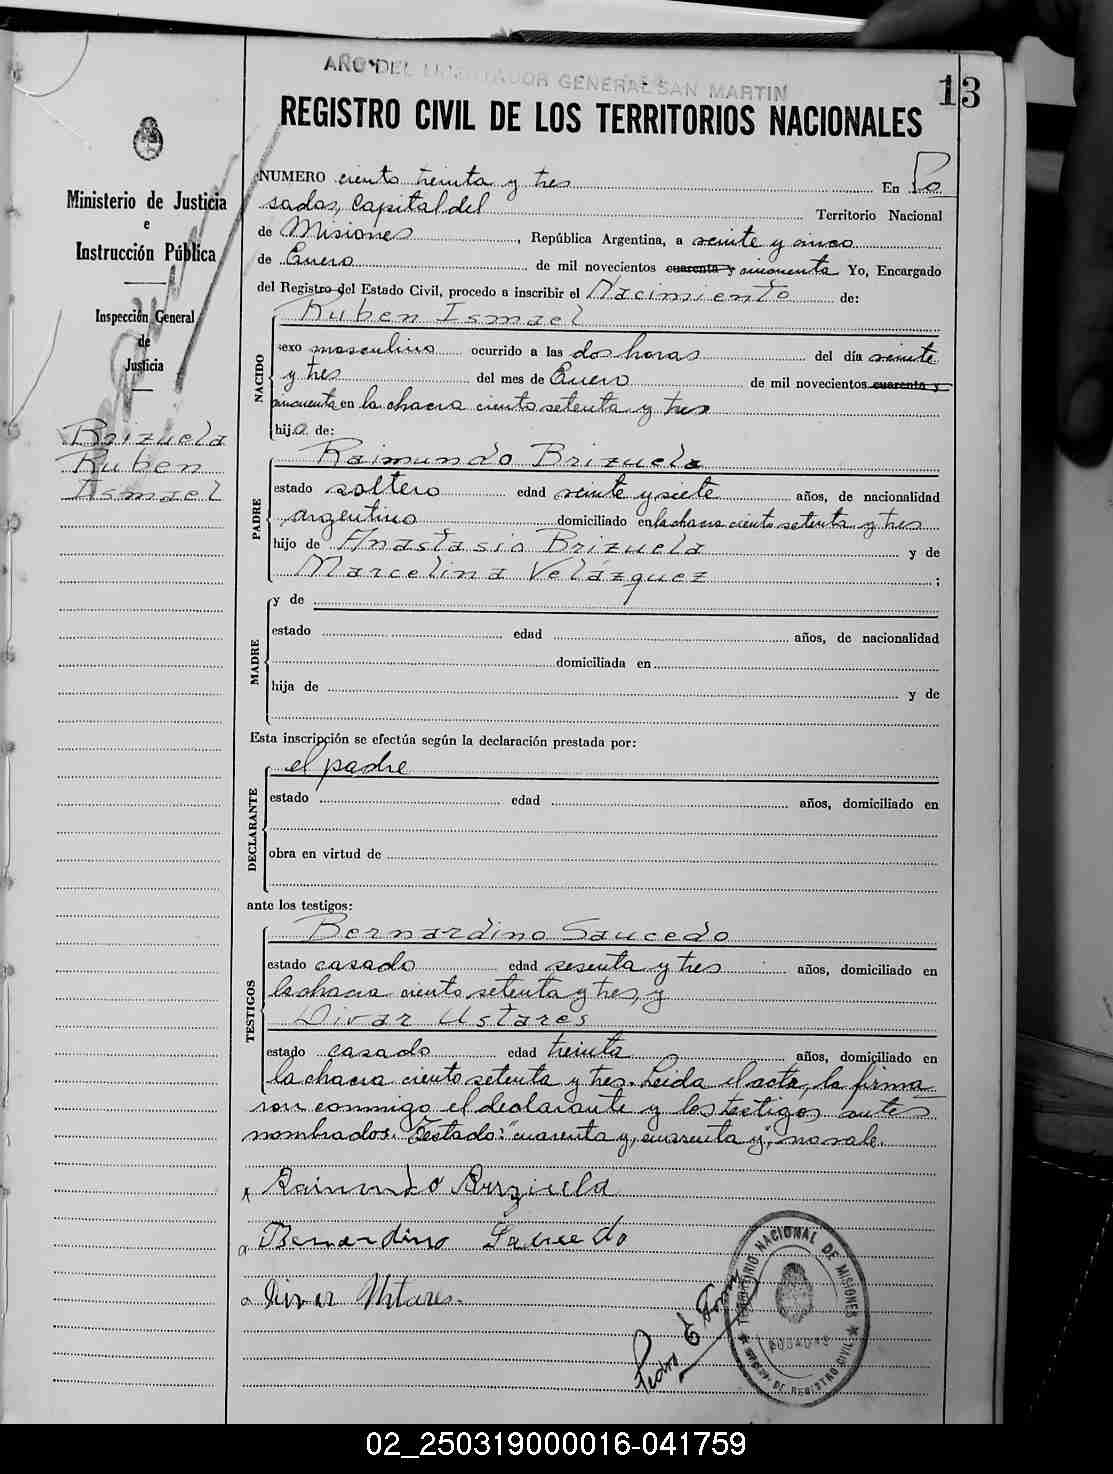 AÑO DEL LIBERTADOR GENERAL SAN MARTIN
13
REGISTRO CIVIL DE LOS TERRITORIOS NACIONALES
Ministerio de Justicia
e
Instrucción Pública
Inspección General
de
Justicia
Brizuela
Ruben
Ismael
NUMERO ciento treinta y tres En Po
sadas, Capital del Territorio Nacional
de Misiones, República Argentina, a veinte y cinco
de Enero de mil novecientos cuarenta y cincuenta Yo, Encargado
del Registro del Estado Civil, procedo a inscribir el Nacimiento de:
NACIDO
Ruben Ismael
sexo masculino ocurrido a las dos horas del día veinte
y tres del mes de Enero de mil novecientos cuarenta y
cincuenta en la chacra ciento setenta y tres
hijo de:
PADRE
Raimundo Brizuela
estado soltero edad veinte y siete años, de nacionalidad
argentino domiciliado en la chacra ciento setenta y tres
hijo de Anastasio Brizuela y de
Marcelina Velázquez ;
MADRE
y de
estado edad años, de nacionalidad
domiciliada en
hija de y de
Esta inscripción se efectúa según la declaración prestada por:
DECLARANTE
el padre
estado edad años, domiciliado en
obra en virtud de
ante los testigos:
TESTIGOS
Bernardino Saucedo
estado casado edad sesenta y tres años, domiciliado en
la chacra ciento setenta y tres, y
Divar Ustares
estado casado edad treinta años, domiciliado en
la chacra ciento setenta y tres. Leida el acta, la firma
ron conmigo el declarante y los testigos antes
nombrados. Testado: "cuarenta y, cuarenta y", no vale.
Raimundo Brizuela
Bernardino Saucedo
Divar Ustares
TERRITORIO NACIONAL DE MISIONES
POSADAS
DE REGISTRO CIVIL
02_250319000016-041759